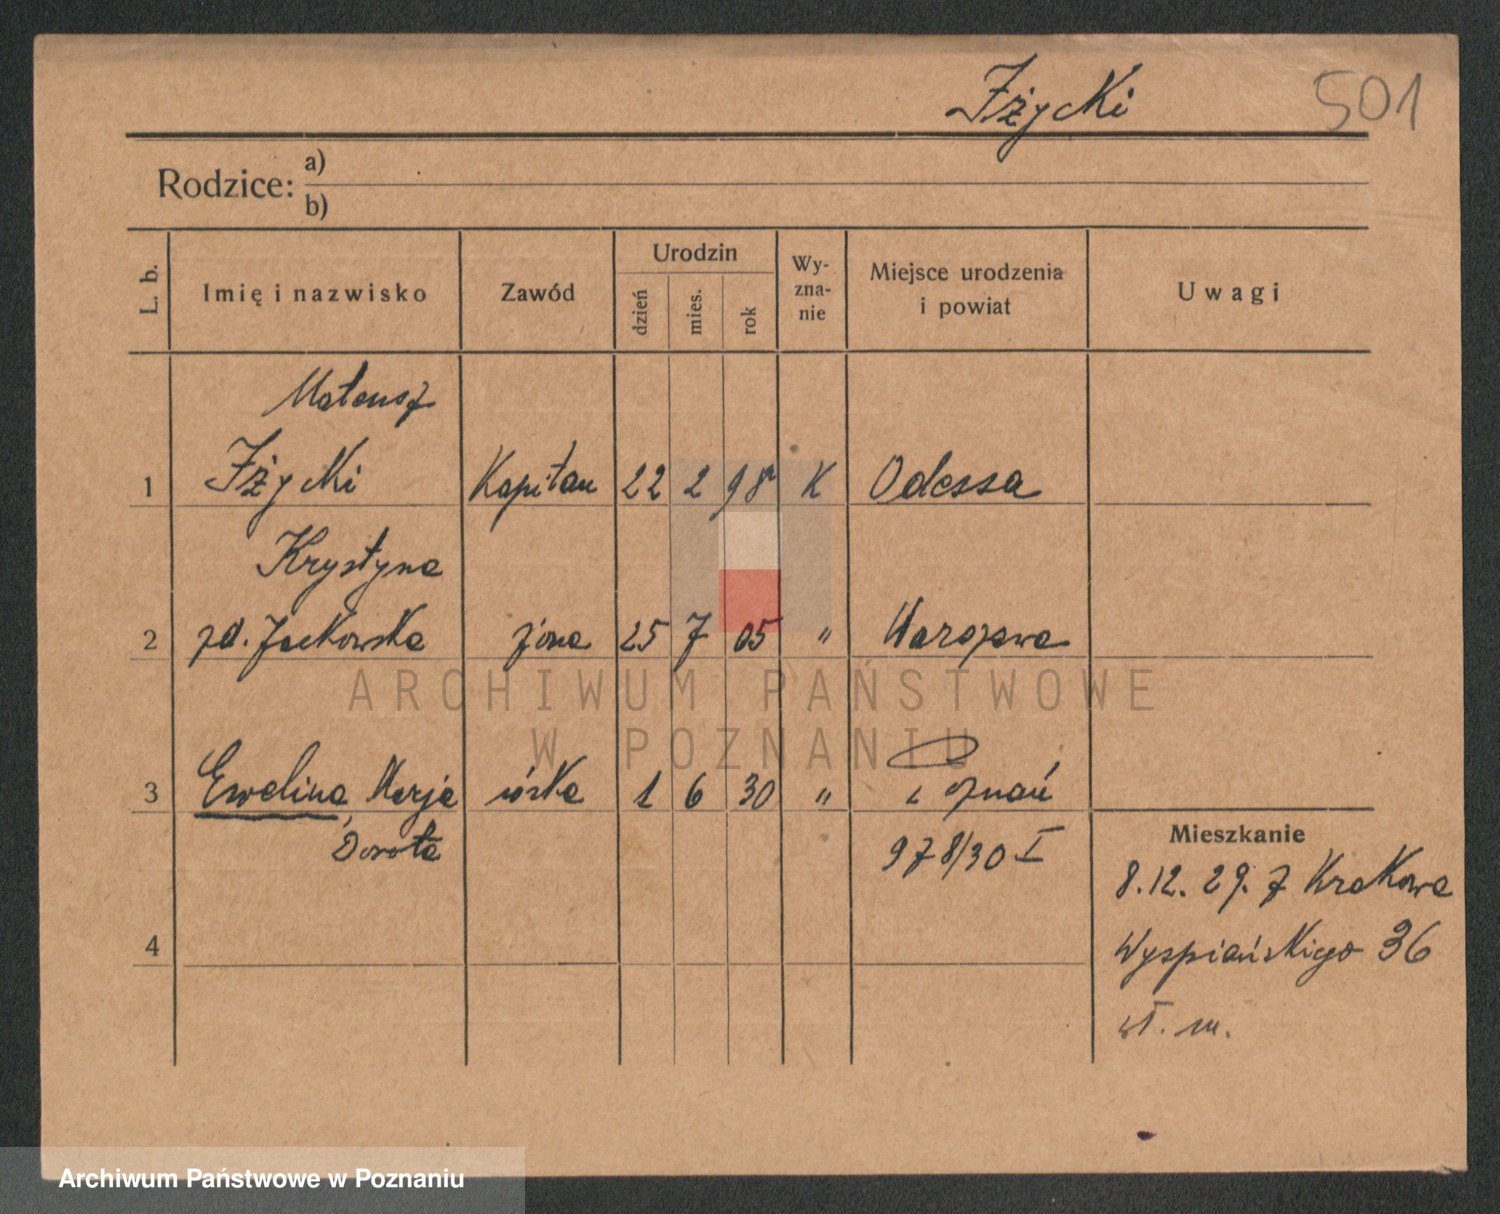 Iżycki 501
Rodzice: a)
b)
L. b. Imię i nazwisko Zawód Urodzin dzień mies. rok Wy-zna-nie Miejsce urodzenia i powiat Uwagi
Mateusz
1 Iżycki Kapitan 22 2 98 K Odessa
Krystyna
2 zd. Jackowska żona 25 7 05 " Warszawa
3 Ewelina Marja córka 1 6 30 " Poznań
Dorota 978/30 I
Mieszkanie
8.12.29. z Krakowa
4 Wyspiańskiego 36
wł. m.
ARCHIWUM PAŃSTWOWE
W POZNANIU
Archiwum Państwowe w Poznaniu